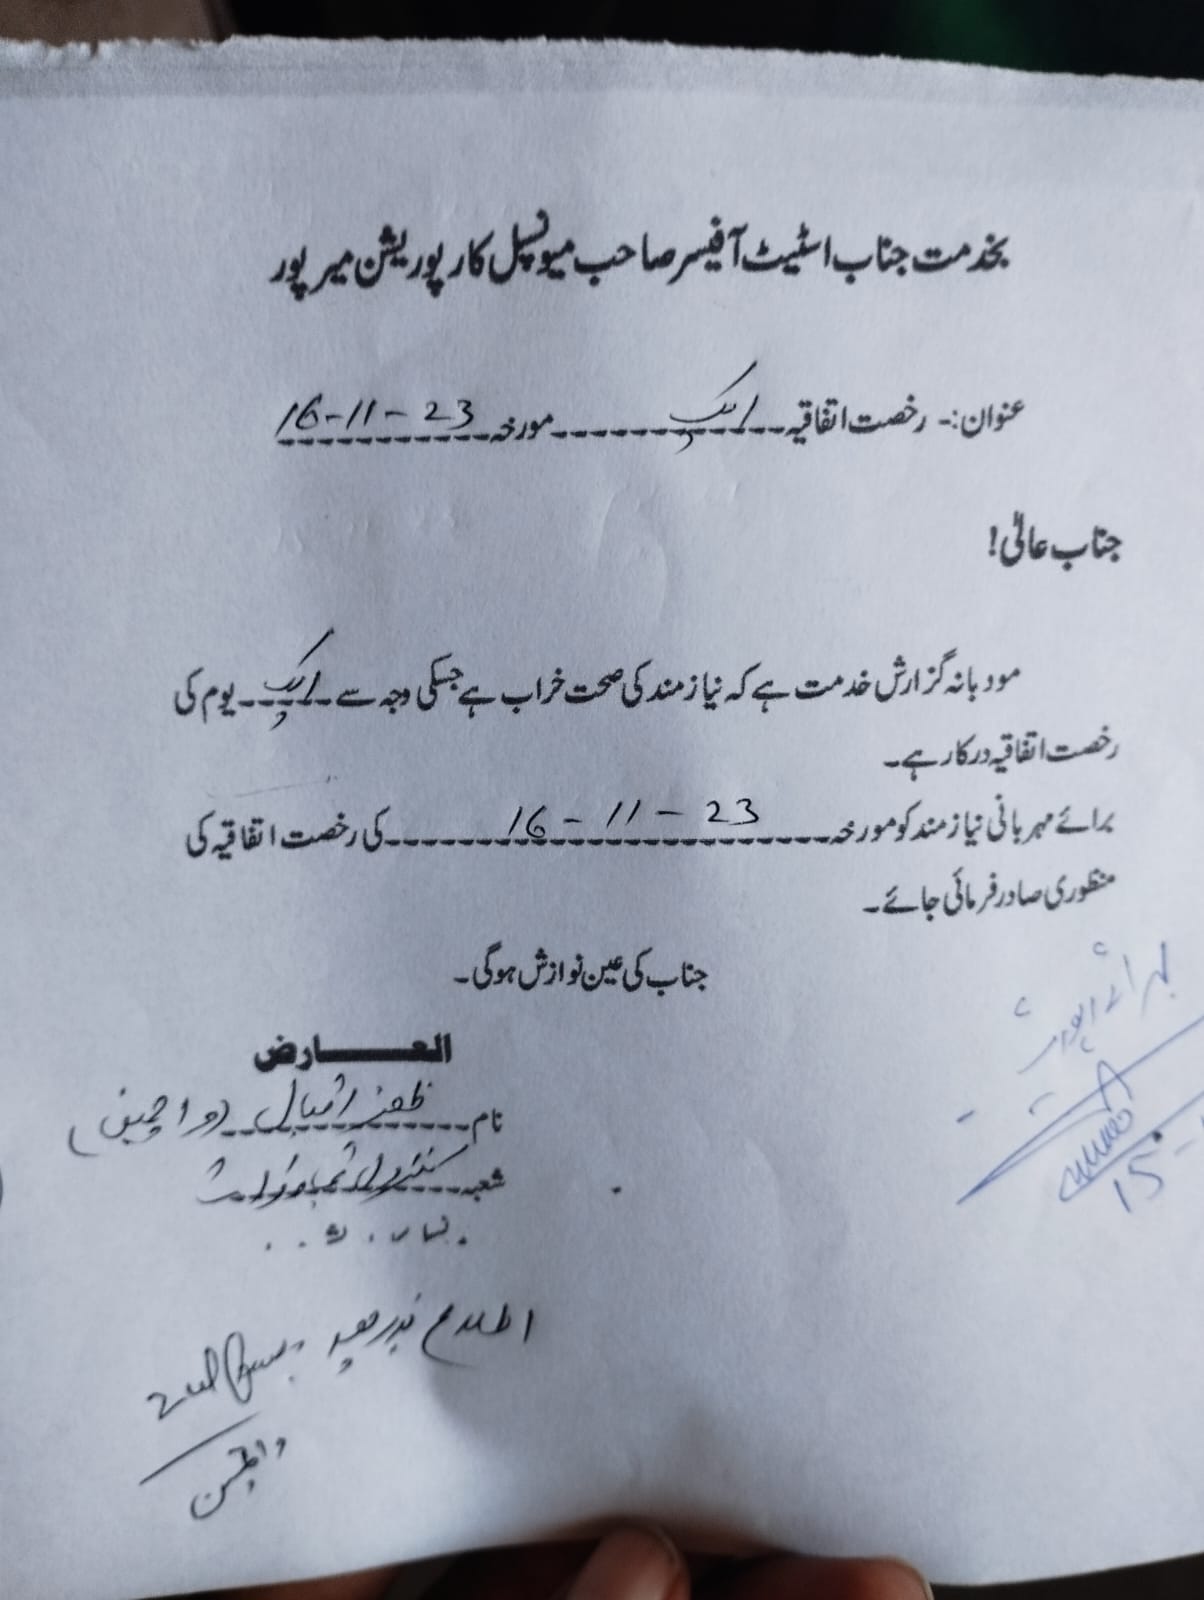 بخدمت جناب اسٹیٹ آفیسر صاحب میونسپل کارپوریشن میرپور
عنوان:- رخصت اتفاقیہ ایک مورخہ 16-11-23
جناب عالی!
مودبانہ گزارش خدمت ہے کہ نیازمند کی صحت خراب ہے جسکی وجہ سے ایک یوم کی
رخصت اتفاقیہ درکار ہے۔
برائے مہربانی نیازمند کو مورخہ 16-11-23 کی رخصت اتفاقیہ کی
منظوری صادر فرمائی جائے۔
جناب کی عین نوازش ہوگی۔
العارض
نام ظفر اقبال (واچمین)
شعبہ
اطلاع بذریعہ
واچمین
15